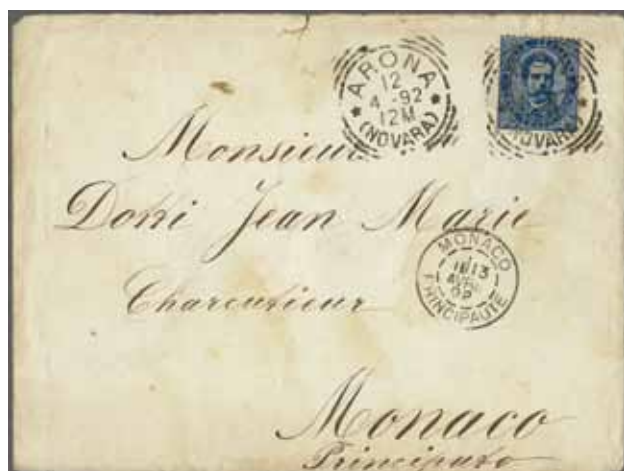 ARONA
12
4 -92
12M
(NOVARA)
NOVARA)
Monsieur
Dotti Jean Marie
Charcutieur
MONACO
13
AVRIL
92
PRINCIPAUTÉ
Monaco
Principato